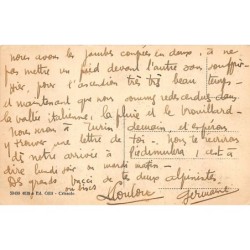 nous avons les jambes coupées en deux, à ne
pas mettre un pied devant l'autre sans souffrir
hier, pour l'ascension très très beau temps
et maintenant que nous sommes redescendus dans
la vallée italienne, la pluie et le brouillard.
Nous irons à Turin demain, et espérons
y trouver une lettre de toi. nous t'écrirons
dès notre arrivée à Piedimulera, c'est à
dire lundi soir ou mardi matin.
Des grands baci de tes deux alpinistes
ou bises
Loulou
Germaine